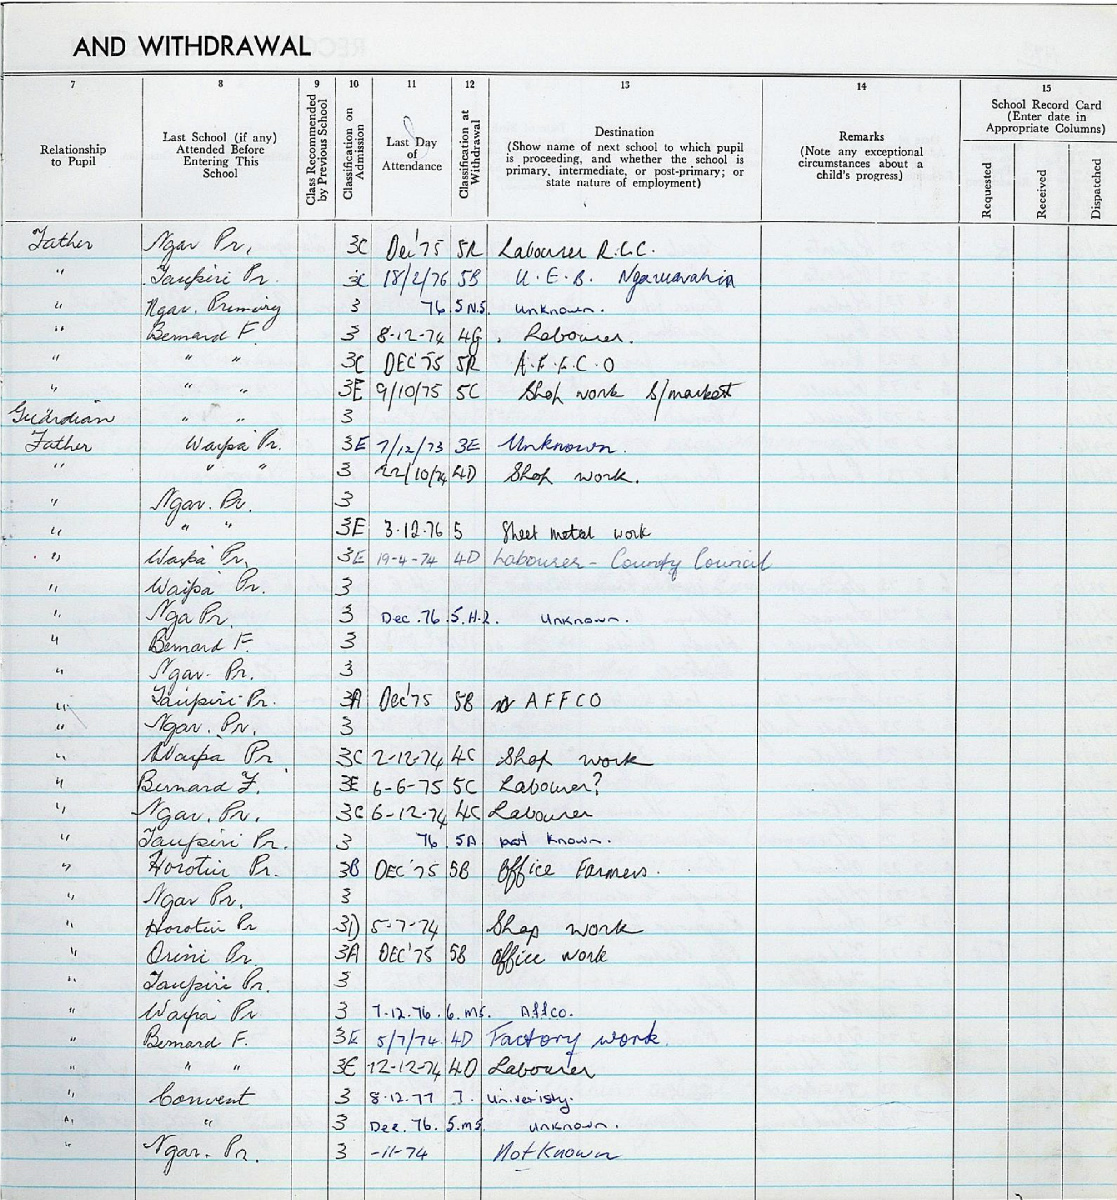 AND WITHDRAWAL
7 8 9 10 11 12 13 14 15
Relationship to Pupil
Last School (if any) Attended Before Entering This School
Class Recommended by Previous School
Classification on Admission
Last Day of Attendance
Classification at Withdrawal
Destination (Show name of next school to which pupil is proceeding, and whether the school is primary, intermediate, or post-primary; or state nature of employment)
Remarks (Note any exceptional circumstances about a child's progress)
School Record Card (Enter date in Appropriate Columns)
Requested Received Dispatched
Father Ngar Pr. 3C Dec '75 5R Labourer R.C.C.
" Taupiri Pr. 3C 18/2/76 5B U.E.B. Ngaruawahia
" Ngar. Primary 3 76 5 N.S. Unknown.
" Bernard F. 3 8-12-74 4G Labourer.
" " " 3C DEC '75 5R A.F.F.C.O
" " " 3E 9/10/75 5C Shop work S/market
Guardian " " 3
Father Waipa Pr. 3E 7/12/73 3E Unknown.
" " " 3 22/10/74 4D Shop work.
" Ngar. Pr. 3
" " " 3E 3.12.76 5 Sheet metal work
" Waipa Pr. 3E 19-4-74 4D Labourer - County Council
" Waipa Pr. 3
" Nga Pr. 3 Dec. 76 5.H.2. Unknown.
" Bernard F. 3
" Ngar. Pr. 3
" Taupiri Pr. 3A Dec '75 5B AFFCO
" Ngar. Pr. 3
" Waipa Pr 3C 2-12-74 4C Shop work
" Bernard F. 3E 6-6-75 5C Labourer?
" Ngar. Pr. 3C 6-12-74 4C Labourer
" Taupiri Pr. 3 76 5A not known.
" Horotiu Pr. 3B DEC '75 5B Office Farmers.
" Ngar Pr. 3
" Horotiu Pr 3D 5-7-74 Shop work
" Orini Pr. 3A DEC '75 5B Office work
" Taupiri Pr. 3
" Waipa Pr 3 7.12.76. 6.MS. Affco.
" Bernard F. 3E 5/7/74 4D Factory work.
" " " 3E 12-12-74 4D Labourer
" Convent 3 8.12.77 7. Univeristy.
" " 3 Dec. 76. 5.MS. Unknown.
" Ngar. Pr. 3 -11-74 Not Known